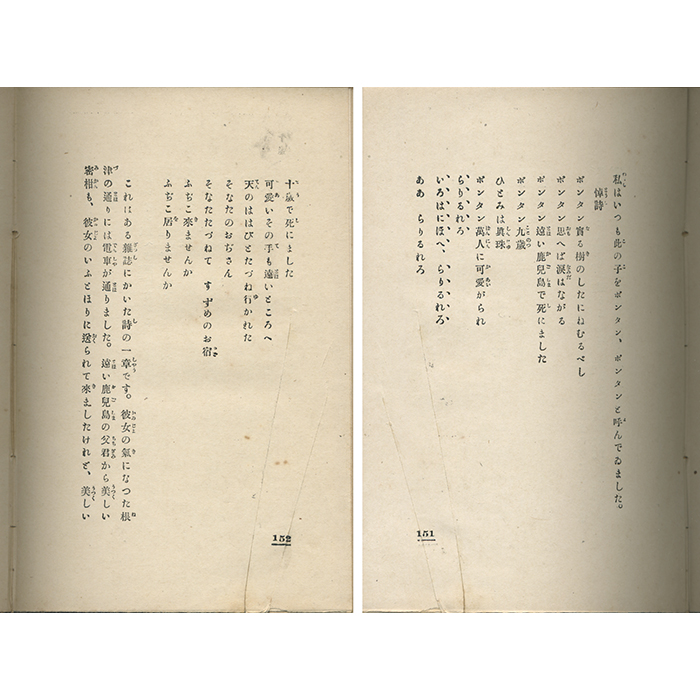 私はいつも此の子をボンタン、ボンタンと呼んでゐました。
悼詩
ボンタン實る樹のしたにねむるべし
ボンタン思へば涙はながる
ボンタン遠い鹿兒島で死にました
ボンタン九歳
ひとみは眞珠
ボンタン萬人に可愛がられ
らりるれろ
いろはにほへ、らりるれろ
ああ らりるれろ
151
十歳で死にました
可愛いその手も遠いところへ
天のははびとたづね行かれた
そなたのおぢさん
そなたたづねて すずめのお宿
ふぢこ來ませんか
ふぢこ居りませんか
これはある雜誌にかいた詩の一章です。彼女の氣になつた根
津の通りには電車が通りました。遠い鹿兒島の父君から美しい
蜜柑も、彼女のいふとほりに送られて來ましたけれど、美しい
152